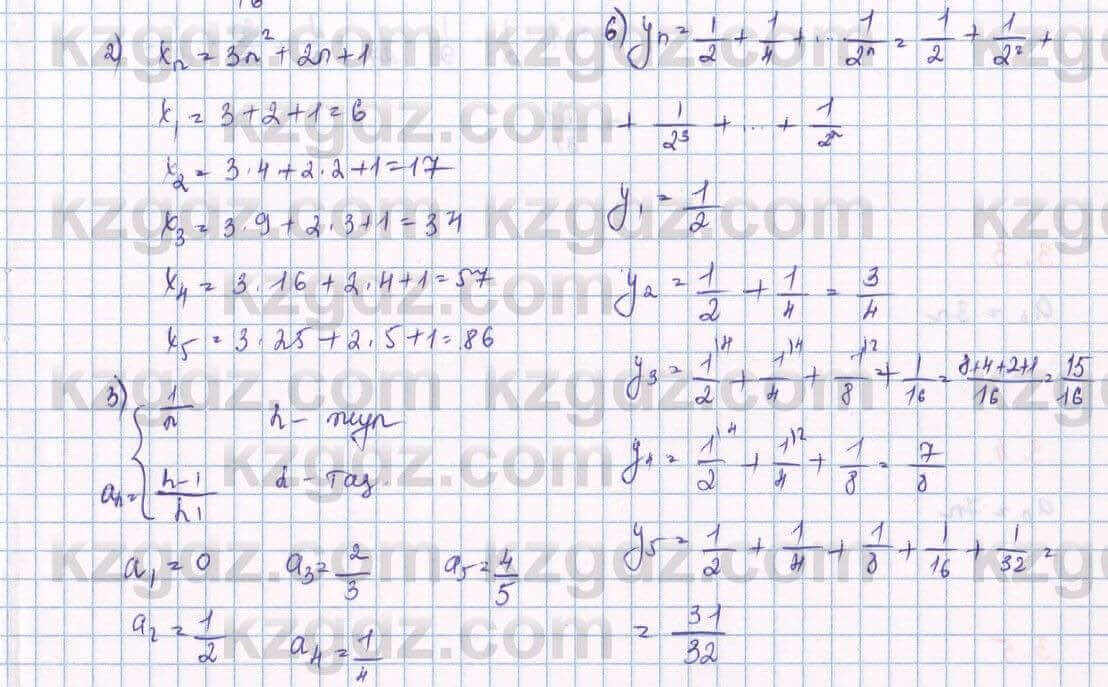 2) xₙ = 3n² + 2n + 1
x₁ = 3 + 2 + 1 = 6
x₂ = 3·4 + 2·2 + 1 = 17
x₃ = 3·9 + 2·3 + 1 = 34
x₄ = 3·16 + 2·4 + 1 = 57
x₅ = 3·25 + 2·5 + 1 = 86
3) aₙ = { 1/n n - жұп
(n-1)/n1 n - тақ.
a₁ = 0 a₃ = 2/3 a₅ = 4/5
a₂ = 1/2 a₄ = 1/4
6) yₙ = 1/2 + 1/4 + ... 1/2ⁿ = 1/2 + 1/2² +
+ 1/2³ + ... + 1/2ⁿ
y₁ = 1/2
y₂ = 1/2 + 1/4 = 3/4
y₃ = 1/2 + 1/4 + 1/8 + 1/16 = (8+4+2+1)/16 = 15/16
y₄ = 1/2 + 1/4 + 1/8 = 7/8
y₅ = 1/2 + 1/4 + 1/8 + 1/16 + 1/32 =
= 31/32
kzgdz.com